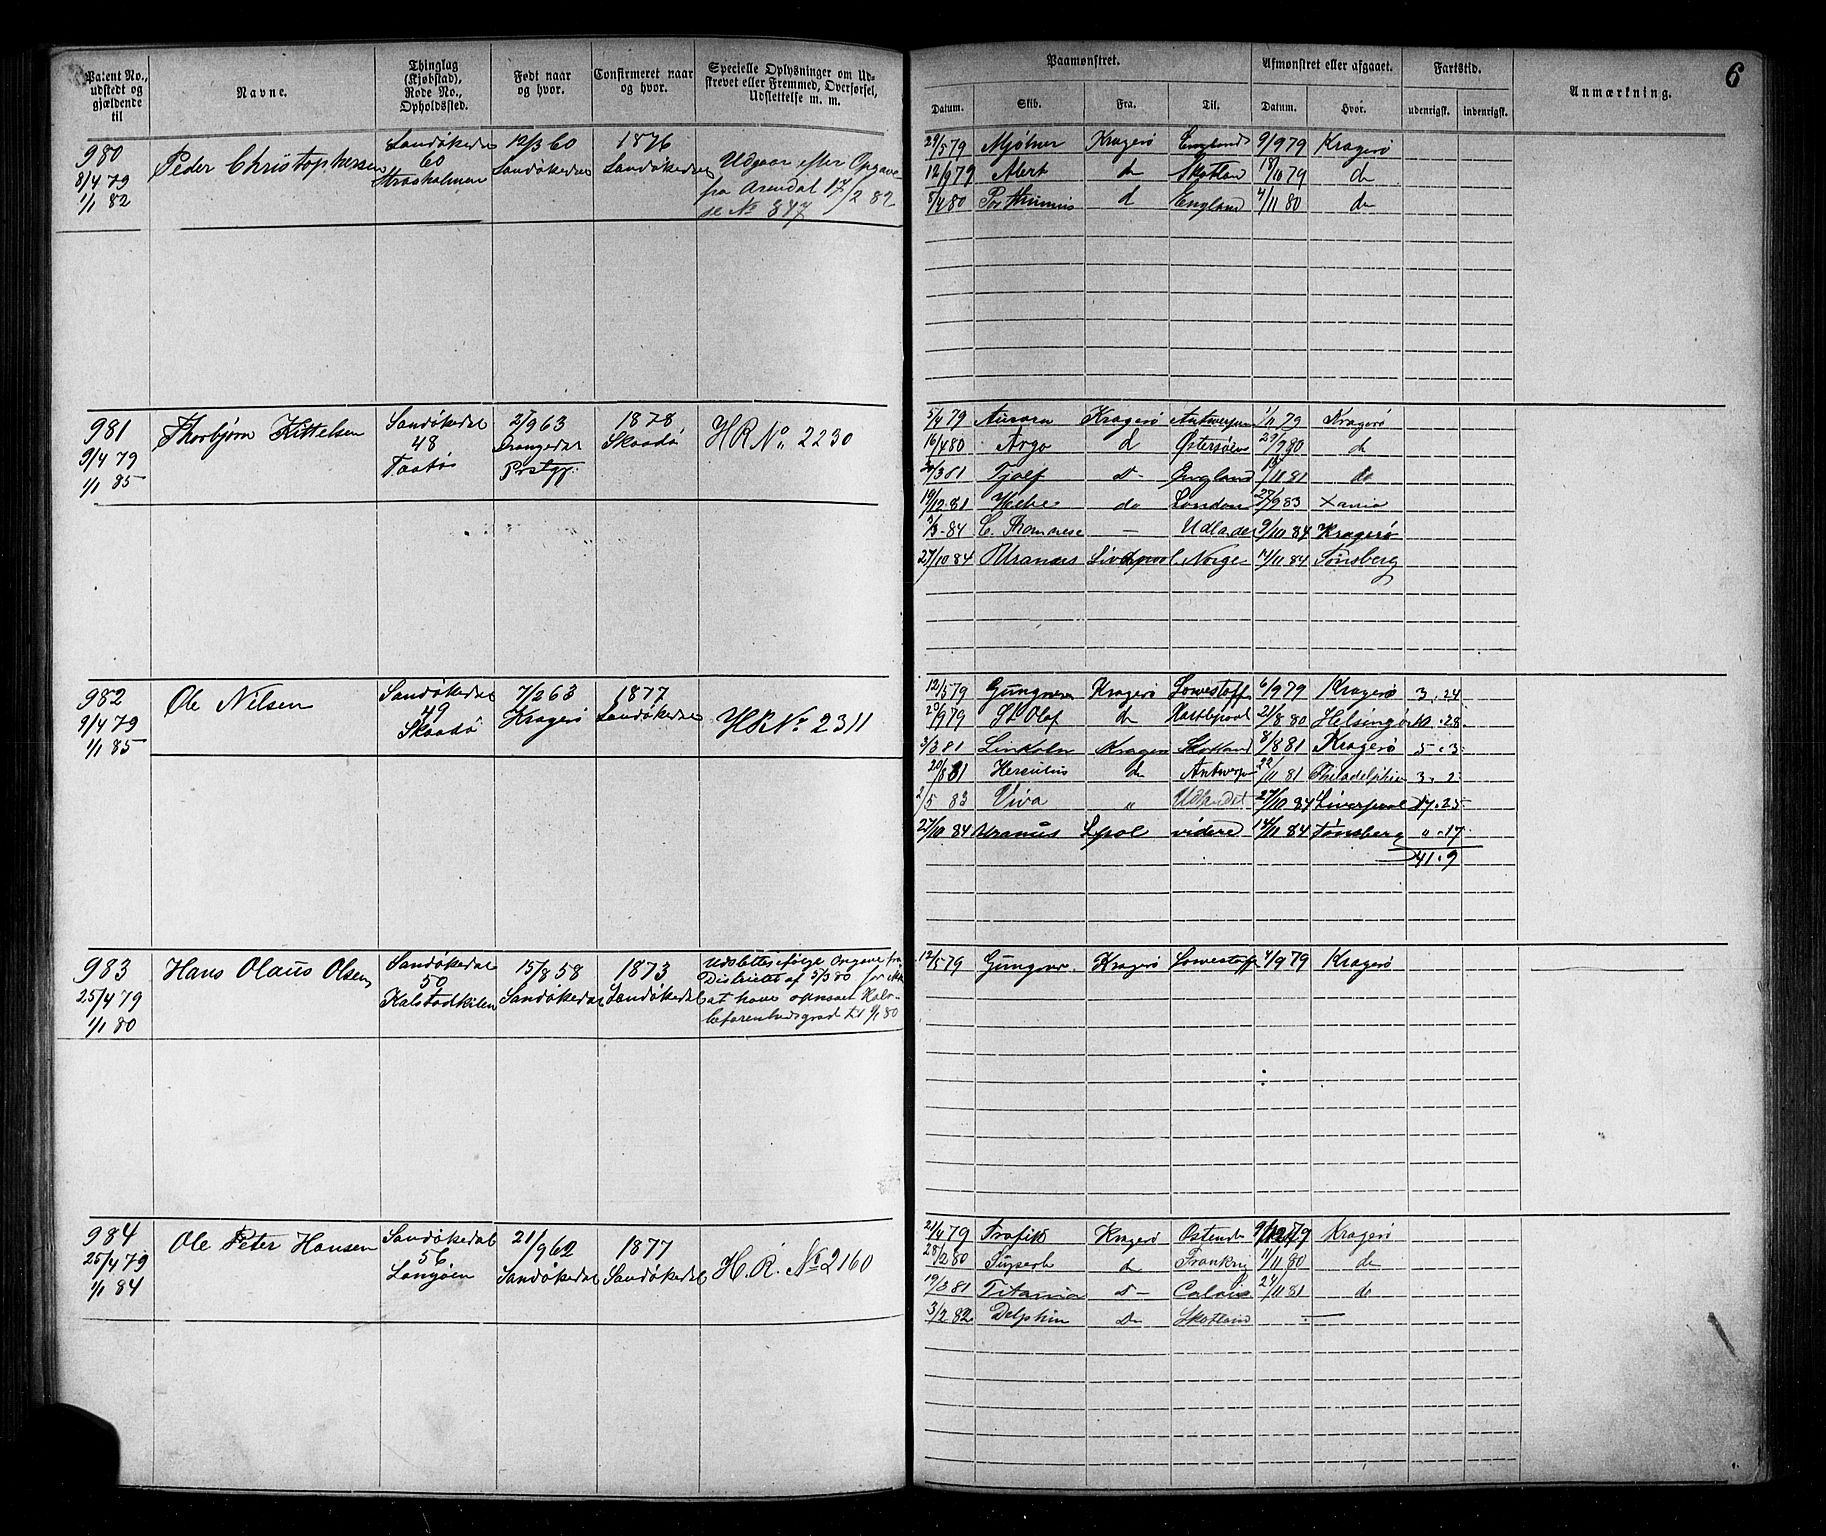 6
Patent No., udstedt og gjældende til
Navne.
Thinglag (Kjøbstad), Rode No., Opholdssted.
Født naar og hvor.
Confirmeret naar og hvor.
Specielle Oplysninger om Udstrevet eller Fremmed, Oversørsel, Udslettelse m. m.
Paamønstret.
Afmønstret eller afgaaet.
Fartstid.
Anmærkning.
Datum. Skib. Fra. Til. Datum. Hvor. udenrigst. indenrigst.
980
8/4 79
1/1 82
Peder Christophersen
Sandøkedal
60
Straaholmen
12/3 60
Sandøkedal
1876
Sandøkedal
Udgaar efter Opgave
fra Arendal 17/2 82
se No 847
29/5 79 Mjølner Kragerø England 9/9 79 Kragerø
12/9 79 Alert d Skotland 18/11 79 do
5/4 80 England 4/11 80 do
981
9/4 79
1/1 85
Thorbjørn Kittelsen
Sandøkedal
48
Taatø
2/9 63
Drangedal
Prstgj.
1878
Skaadø
H R No. 2230
5/4 79 Aurora Kragerø Antwerpen 1/11 79 Kragerø
16/4 80 Argo d Østersøen 29/9 80 do
3 81 Fjalf d- England 11 81 do
19/12 81 Hebe do London 27/9 83 Xania
3 84 C. — Udlandet 9/10 84 Kragerø
27/10 84 Uranus Liverpool Norge 14/11 84 Tønsberg
982
9/4 79
1/1 85
Ole Nilsen
Sandøkedal
49
Skaadø
7/2 63
Kragerø
1877
Sandøkedal
HR No. 2311
12/5 79 Gungner Kragerø Lowestoff 6/9 79 Kragerø 3. 24
20/9 79 St Olaf do Hartlepool 21/8 80 Helsingør 10. 28
3/3 81 Linkoln Kragerø Skotland 8/8 81 Kragerø 5. 3
20/8 81 Herculus do Antwerpen 22/11 81 Philadelphia 3. 2
2/5 83 Viva „ Udlandet 27/10 84 Liverpool 17. 25
27/10 84 Uranus Lpol videre 14/11 84 Tønsberg „. 17
41. 9
983
25/4 79
1/1 80
Hans Olaus Olsen
Sandøkedal
50
Kalstadkilen
15/8 58
Sandøkedal
1873
Sandøkedal
Udslettes ifølge Opgave fra
Districtet af 5/3 80 for ikke
at have opnaaet Halv-
befarenhedsgrad til 1/1 80
12/5 79 Gungner. Kragerø Lowestoff 4/9 79 Kragerø
984
25/4 79
1/1 84
Ole Peter Hansen
Sandøkedal
56
Langøen
21/9 62
Sandøkedal
1877
Sandøkedal
H. R. No 2160
21/4 79 Trafik Kragerø Ostende 9/12 79 Kragerø
28/2 80 Superb d Frankrig 11/11 80 do
19/3 81 Titania d- Calais 24/11 81 do
3/2 82 Delphin do Skotland —